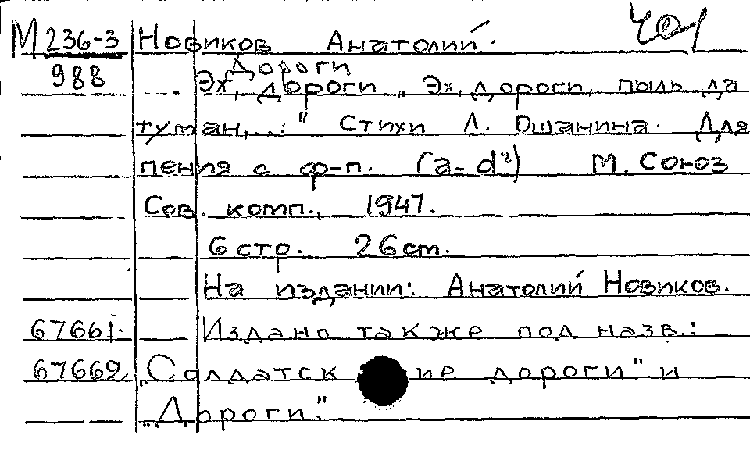 М 236-3 Новиков Анатолий. 401
988 Дороги
Эх, дороги „Эх, дороги, пыль да
туман,..." Стихи Л. Ошанина. Для
пения с ф-п. (a-d²) М. Союз
Сов. комп., 1947.
6 стр. 26 cm.
На издании: Анатолий Новиков.
67661. Издано также под назв.:
67662. „Солдатские дороги" и
„Дороги."